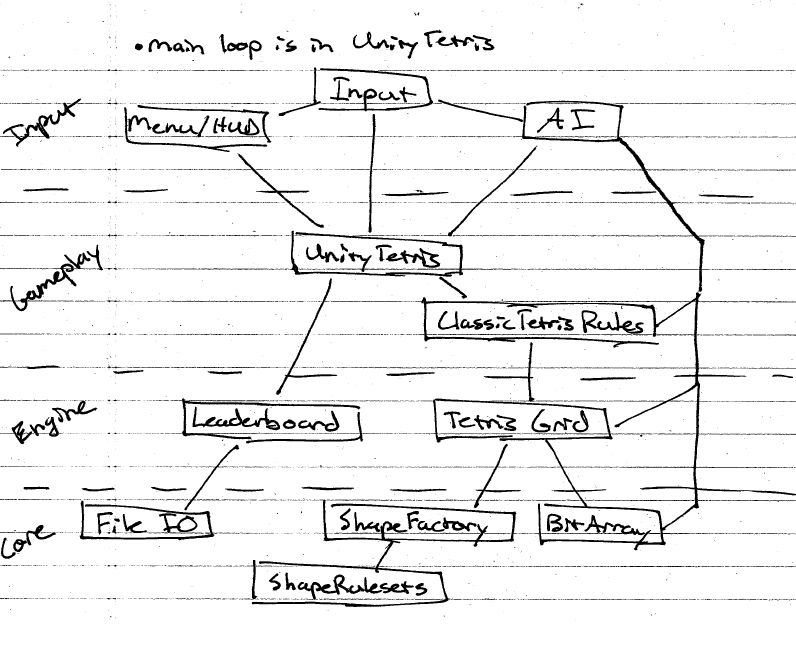 • main loop is in UnityTetris
Input
Input
Menu/HUD
AI
Gameplay
UnityTetris
ClassicTetrisRules
Engine
Leaderboard
Tetris Grid
Core
File IO
ShapeFactory
BitArray
ShapeRulesets